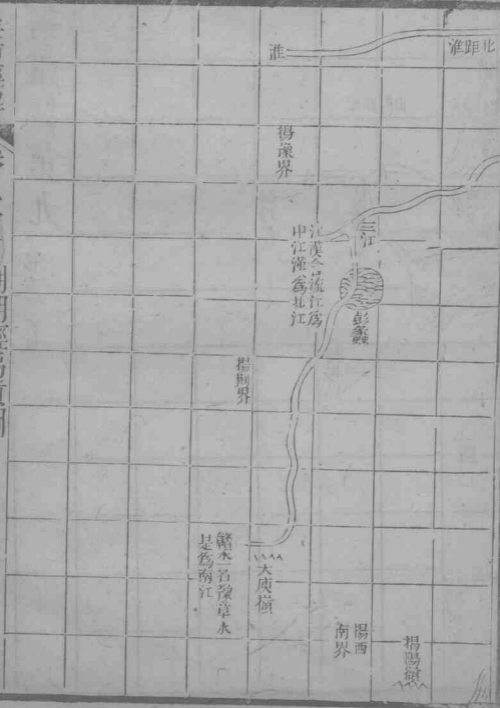 北距淮
淮
揚豫界
三江
江漢合流江爲
中江漢爲北江
彭蠡
揚荆界
贛水一名豫章水
是爲南江
大庾嶺
揚西
南界
揭陽嶺